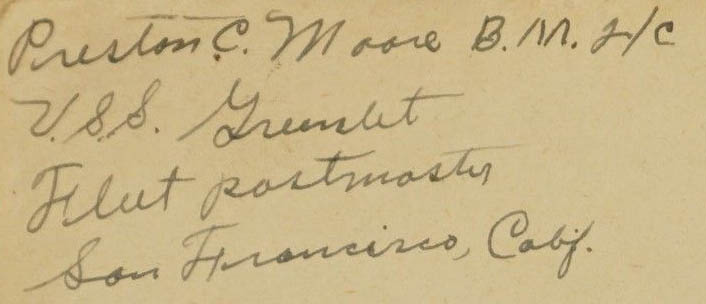 Preston C. Moore B.M. 2/C
U.S.S. Greenlet
Fleet postmaster
San Francisco, Calif.